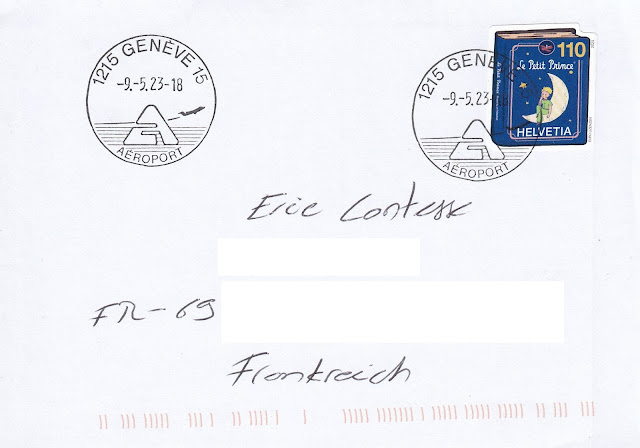 1215 GENÈVE 15
-9.-5.23-18
AÉROPORT
1215 GENÈVE
-9.-5.23-
AÉROPORT
110
Le Petit Prince
Le Petit Prince
HELVETIA
Eric Contesse
FR-69
Frankreich